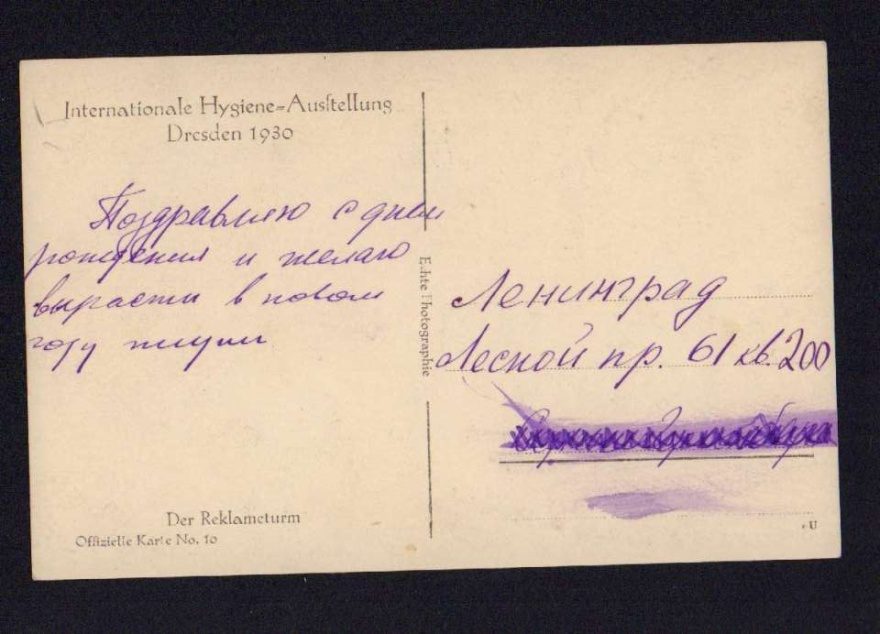 Internationale Hygiene=Ausstellung
Dresden 1930
Поздравляю с днем
рождения и желаю
вырасти в новом
году жизни
Echte Photographie
Ленинград
Лесной пр. 61 кв. 200
Der Reklameturm
Offizielle Karte No. 10